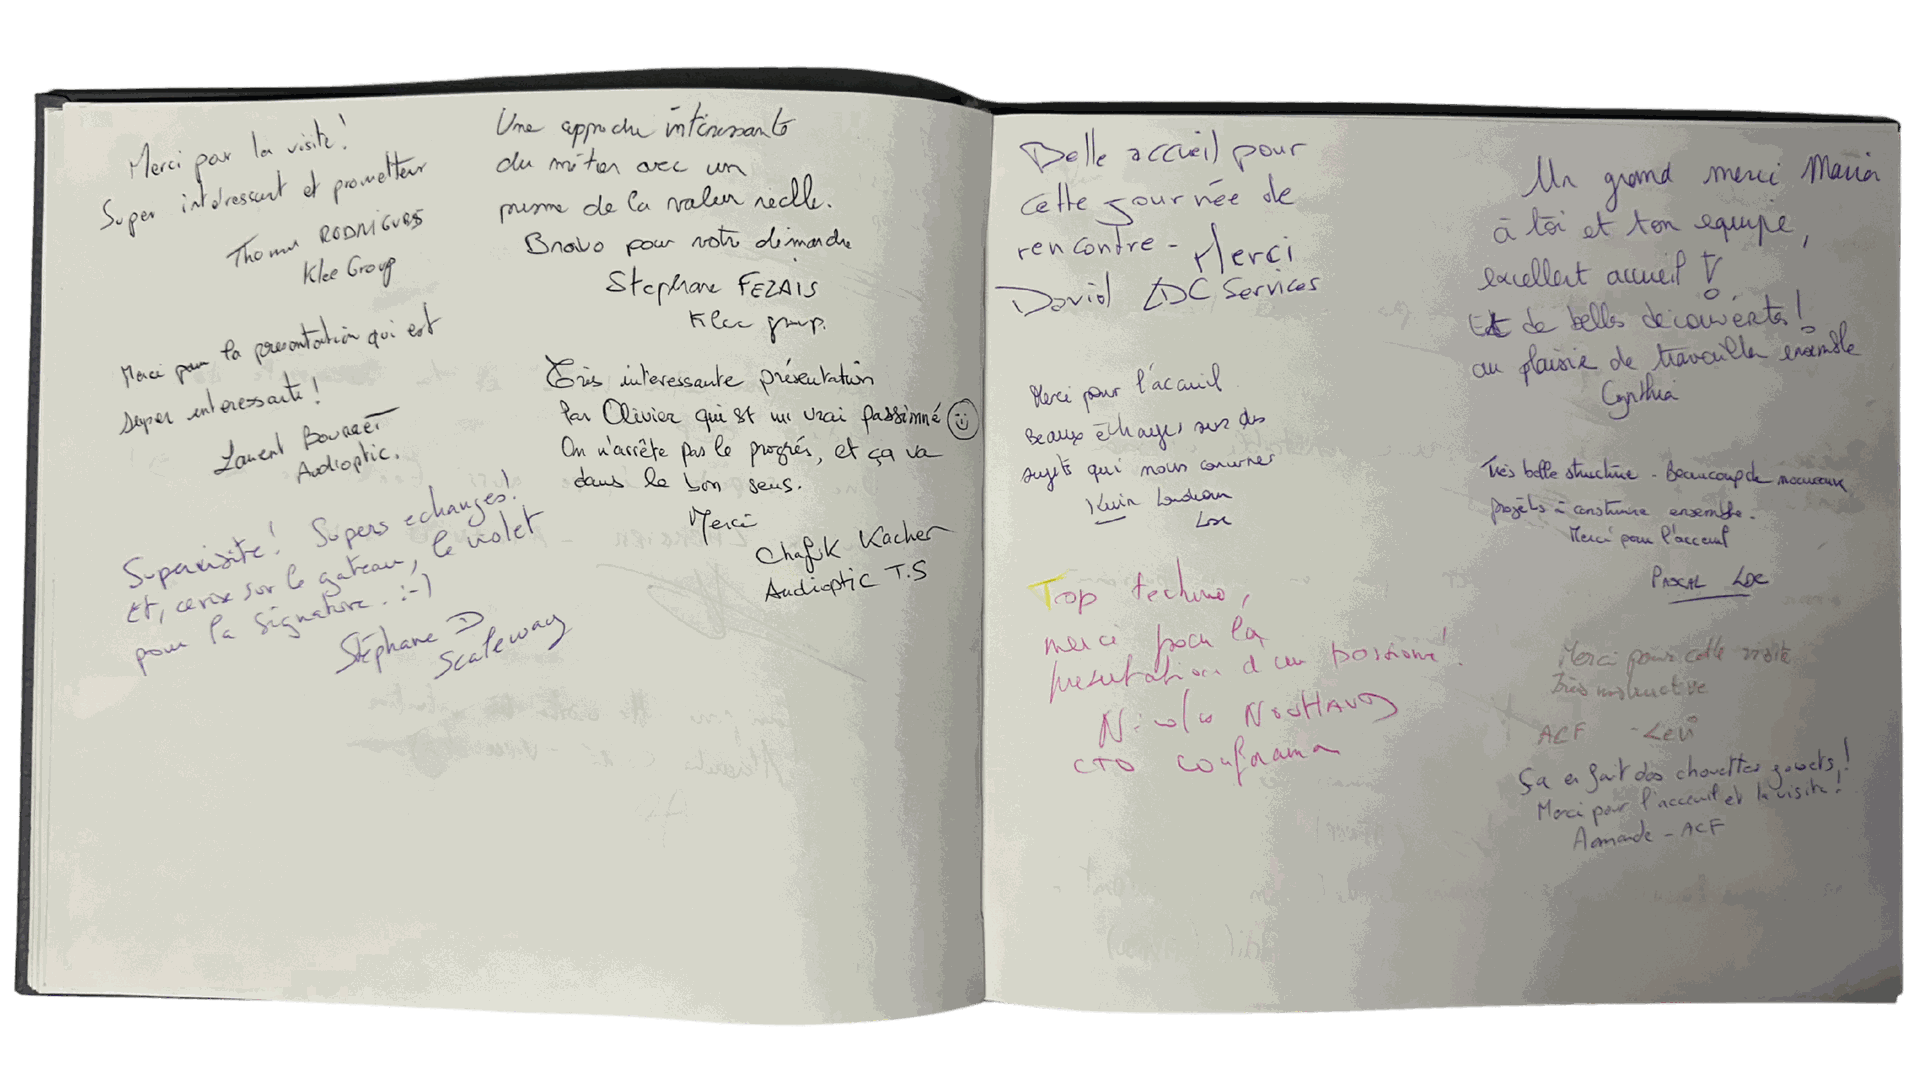 Merci pour la visite!
Super intéressant et prometteur
Thomas RODRIGUES
Klee Group
Merci pour la presentation qui est
super interessante!
Laurent
Audioptic.
Supervisite! Supers echanges!
Et, cerise sur le gateau, le violet
pour la signature. :-)
Stéphane D
Scaleway
Une approche intéressante
du métier avec un
prisme de la valeur réelle.
Bravo pour votre démarche
Stephane FEZAIS
Klee group.
Très interessante présentation
Par Olivier qui st un vrai passionné
On n'arrête pas le progrès, et ça va
dans le bon sens.
Merci
Chafik Kacher
Audioptic T.S
Belle accueil pour
cette journée de
rencontre - Merci
David LDC Services
Merci pour l'accueil
Beaux échanges sur des
sujets qui nous concernes
Kevin
LDC
Top techno,
merci pour la
présentation d'un passionné!
Nicolas
CTO Conforama
Un grand merci Maria
à toi et ton equipe,
excellent accueil !
Et de belles découvertes!
au plaisir de travailler ensemble
Cynthia
Très belle structure - Beaucoup de nouveaux
projets à construire ensemble.
Merci pour l'acceuil
PASCAL LDC
Merci pour cette visite
très instructive
ACF - Levi
Ça en fait des chouettes projets!
Merci pour l'acceuil et la visite!
Armande - ACF